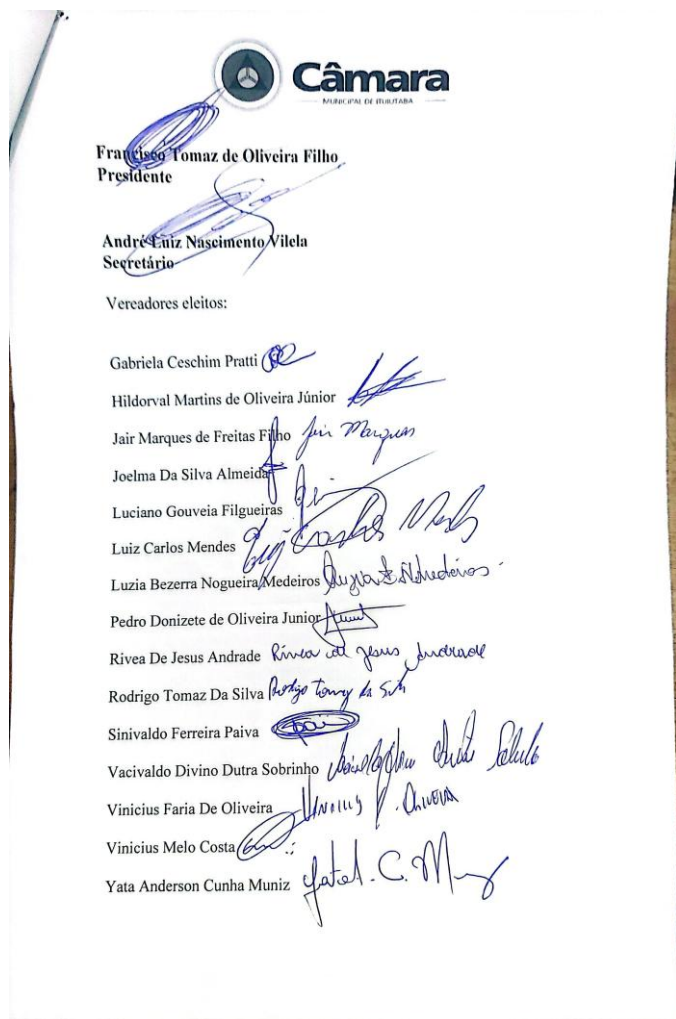 Câmara
MUNICIPAL DE ITUIUTABA
Francisco Tomaz de Oliveira Filho
Presidente
André Luiz Nascimento Vilela
Secretário
Vereadores eleitos:
Gabriela Ceschim Pratti
Hildorval Martins de Oliveira Júnior
Jair Marques de Freitas Filho Jair Marques
Joelma Da Silva Almeida
Luciano Gouveia Filgueiras
Luiz Carlos Mendes Luiz Carlos Mendes
Luzia Bezerra Nogueira Medeiros Luzia B. N. Medeiros
Pedro Donizete de Oliveira Junior
Rivea De Jesus Andrade Rivea de Jesus Andrade
Rodrigo Tomaz Da Silva Rodrigo Tomaz da Silva
Sinivaldo Ferreira Paiva
Vacivaldo Divino Dutra Sobrinho
Vinicius Faria De Oliveira Vinicius F. Oliveira
Vinicius Melo Costa
Yata Anderson Cunha Muniz